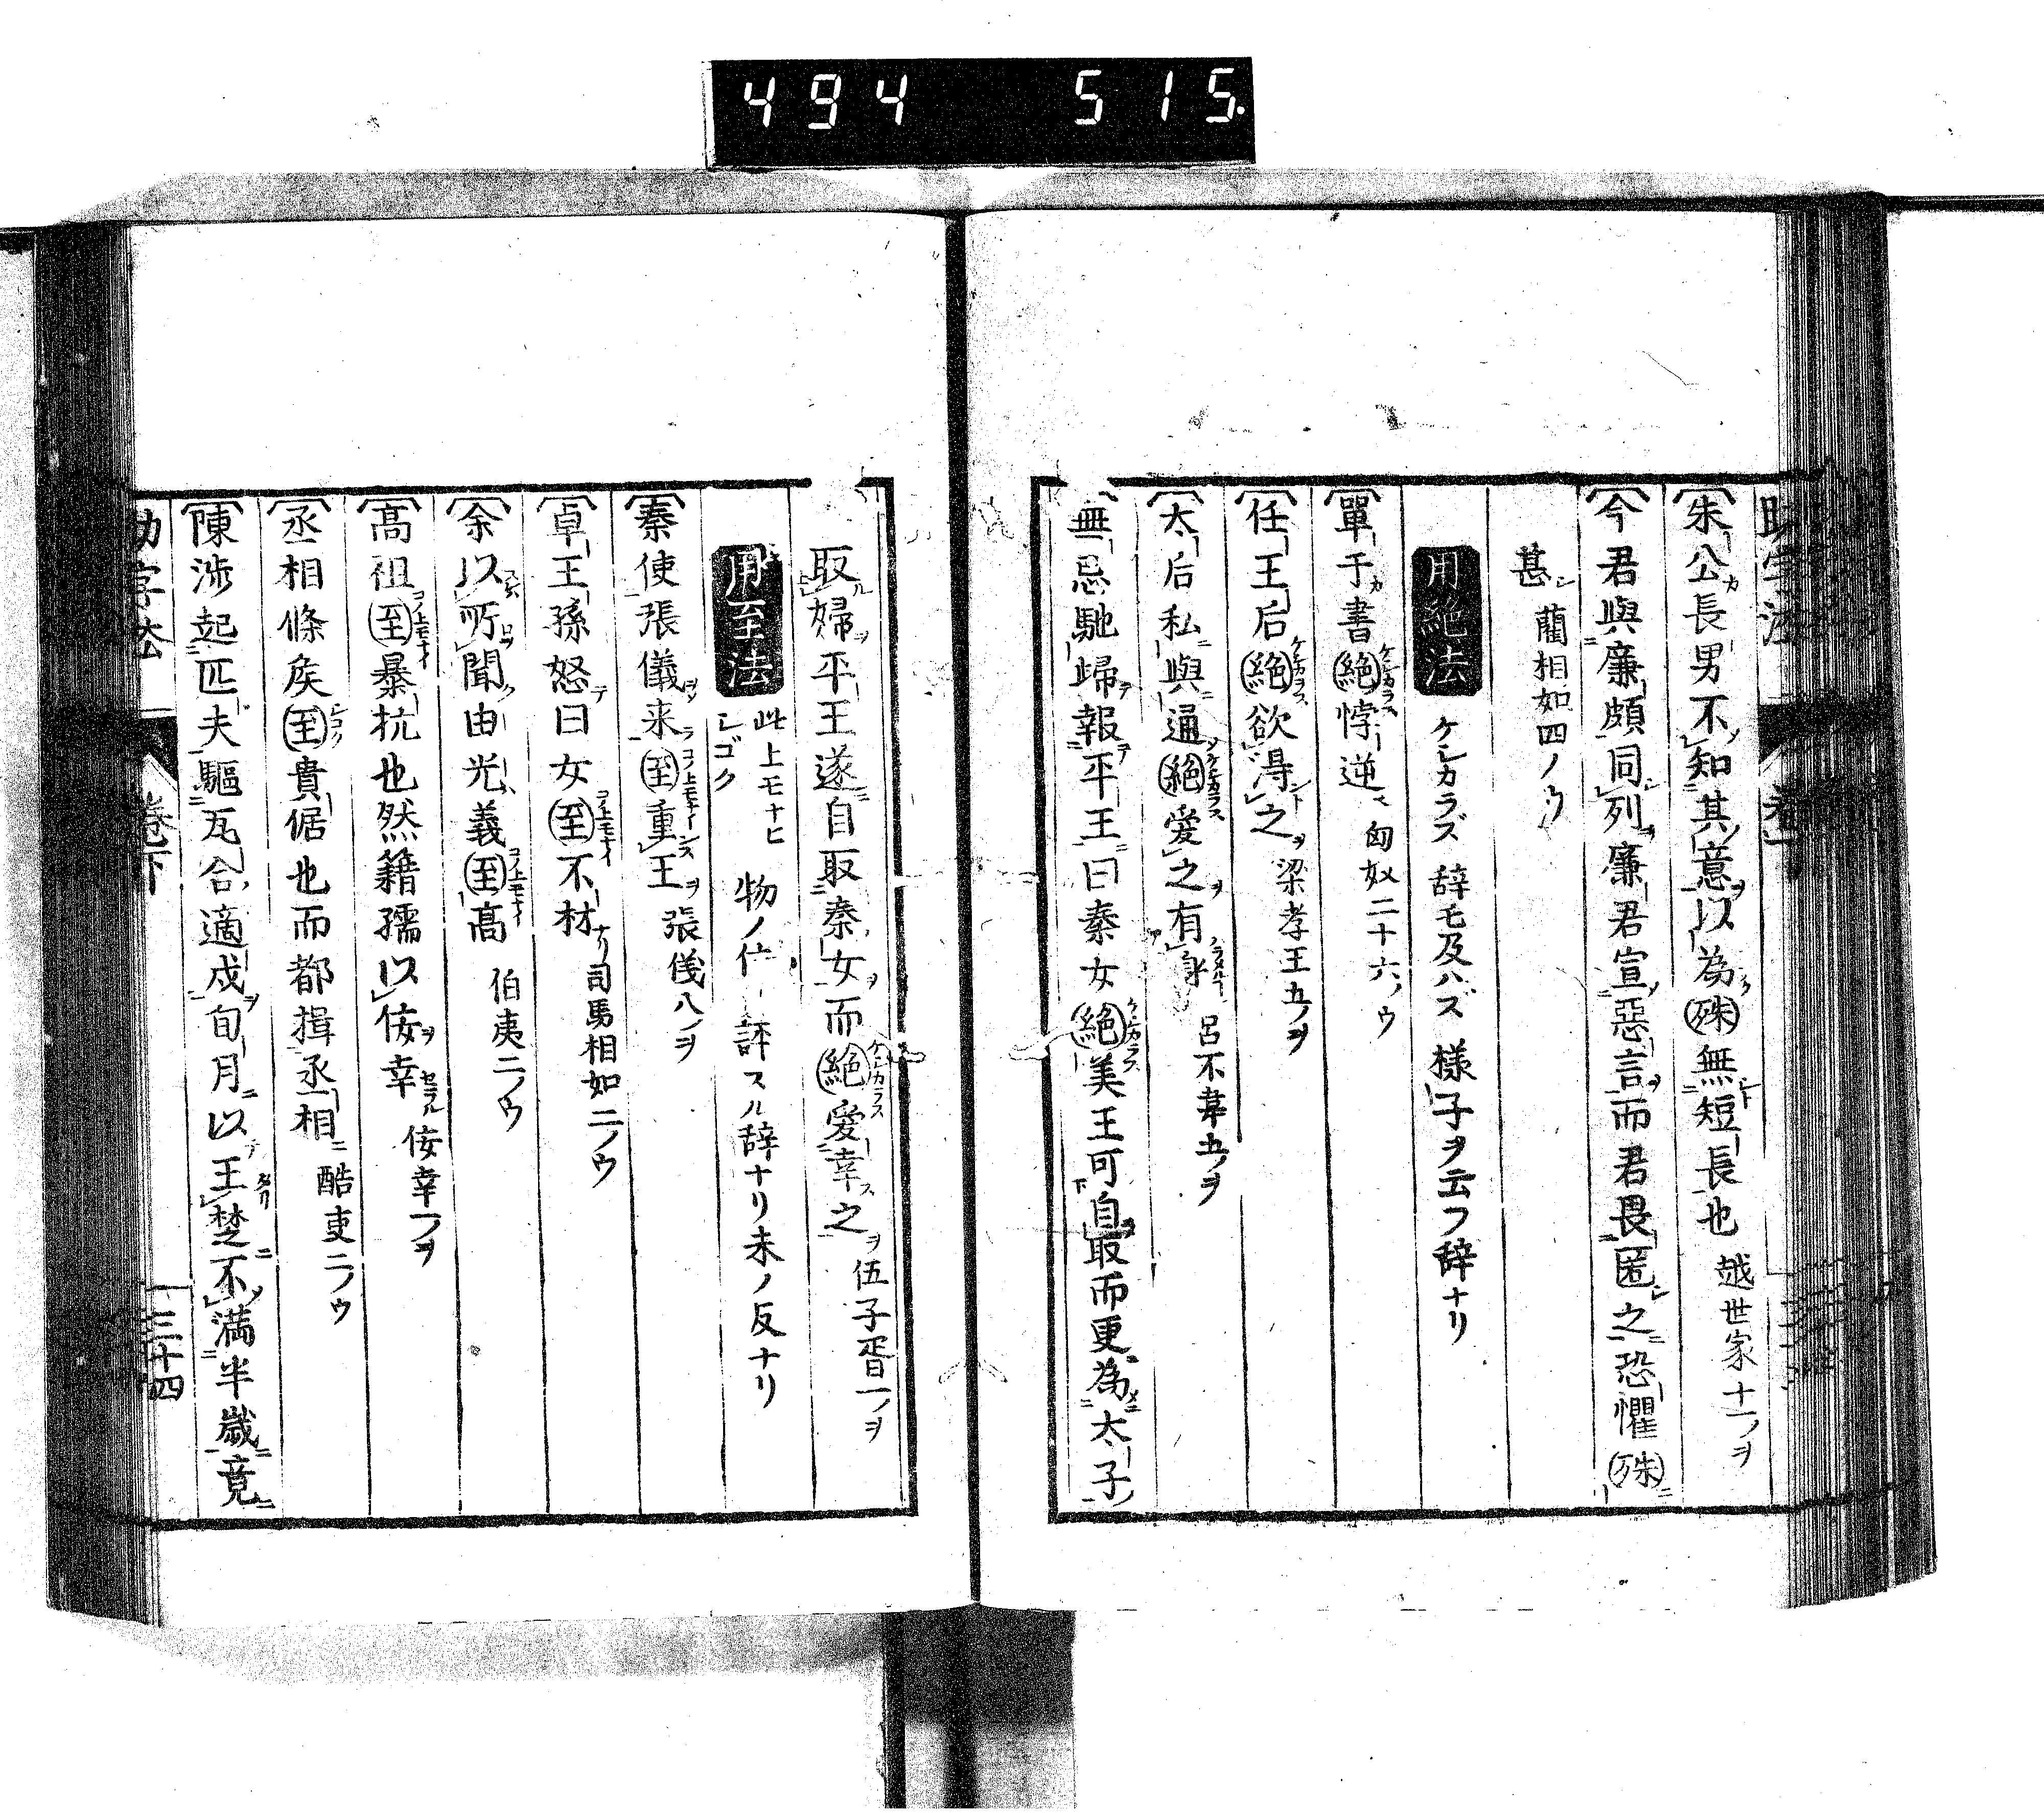 494 515
朱公長男不知其意以為殊無短長也 越世家十一ノヲ
今君與廉頗同列廉君宣惡言而君畏匿之恐懼殊
甚 藺相如四ノウ
用絕法 ケシカラズ 辞モ及ハズ 様子ヲ云フ辞ナリ
單于書絕悖逆 匈奴二十六ノウ
任王后絕欲得之 梁孝王五ノヲ
太后私與通絕愛之有身 呂不韋五ノヲ
無忌馳歸報平王曰秦女絕美王可自取而更為太子
取婦平王遂自取秦女而絕愛幸之 伍子胥一ノヲ
用至法 此上モナヒ シゴク 物ノ 評スル辞ナリ未ノ反ナリ
秦使張儀来至重王 張儀八ノヲ
卓王孫怒曰女至不材 司馬相如二ノウ
余以所聞由光義至高 伯夷二ノウ
高祖至暴抗也然籍孺以佞幸 佞幸一ノヲ
丞相條矦至貴倨也而都揖丞相 酷吏二ノウ
陳涉起匹夫驅瓦合適戍旬月以王楚不満半歲竟
助字法 卷下 三十四